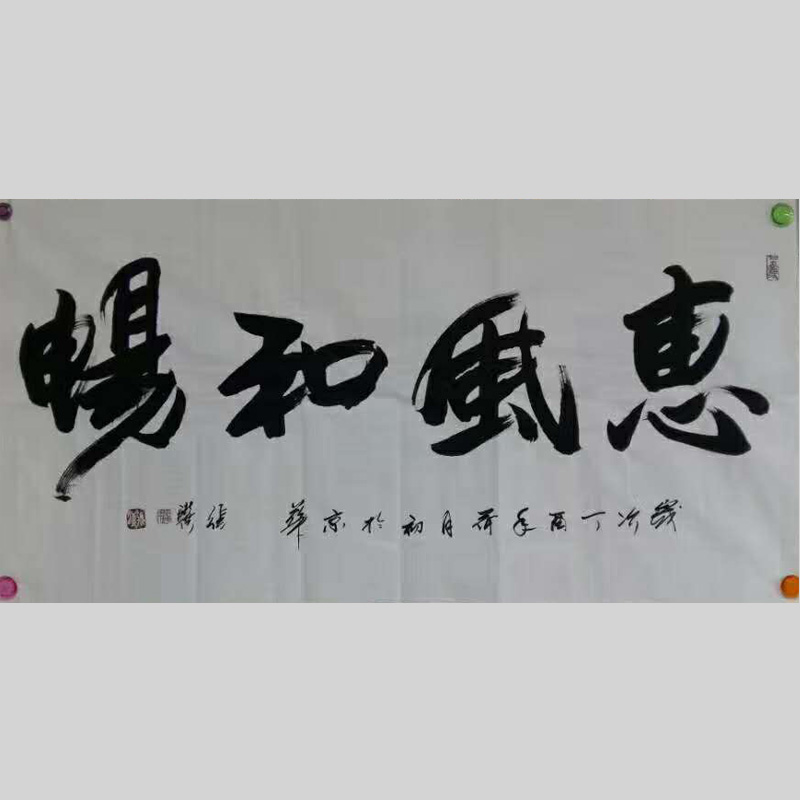 惠風和暢
歲次丁酉年荷月初於京華 張